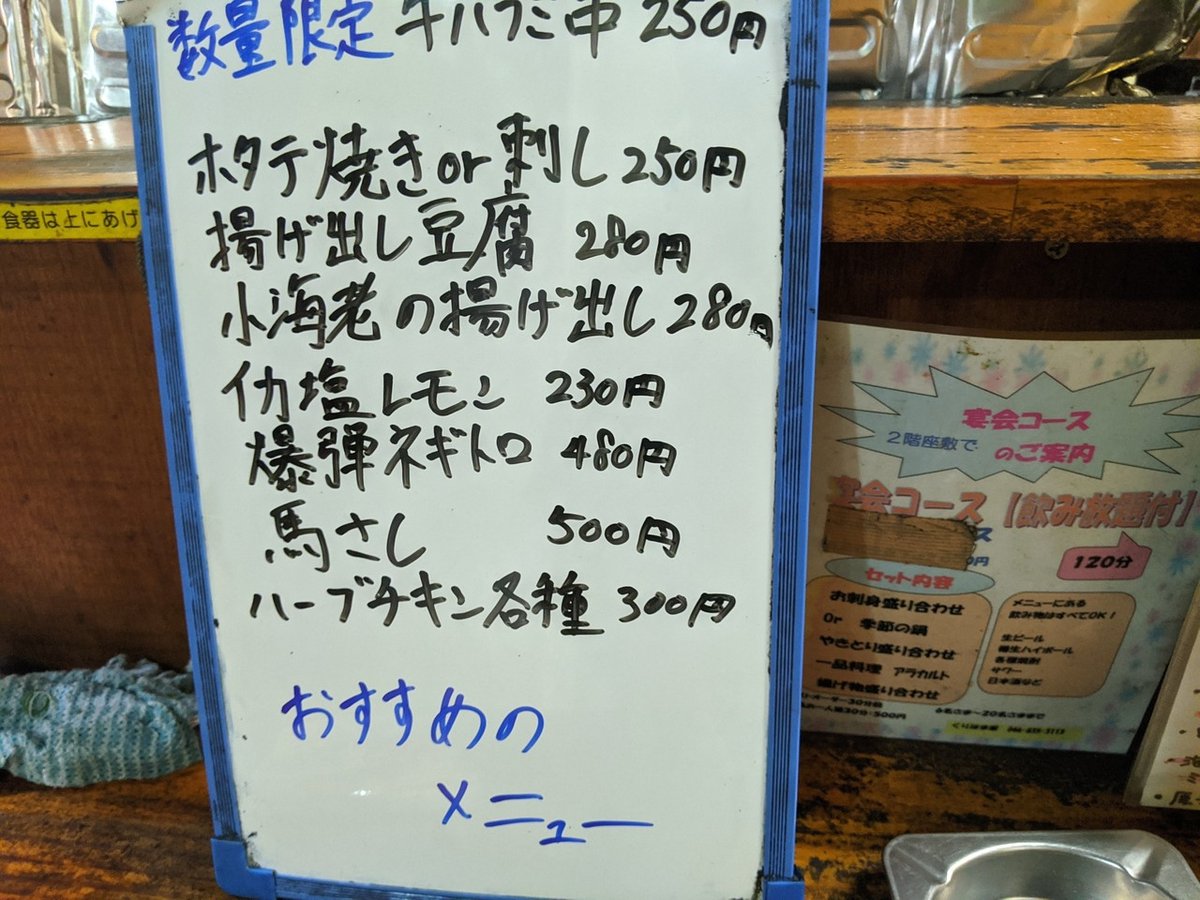 数量限定 牛ハラミ串 250円
ホタテ焼きor刺し 250円
揚げ出し豆腐 280円
小海老の揚げ出し 280円
イカ塩レモン 230円
爆弾ネギトロ 480円
馬さし 500円
ハーブチキン各種 300円
おすすめの
メニュー
食器は上にあげ
宴会コース
2階座敷で
のご案内
宴会コース【飲み放題付】
120分
セット内容
お刺身盛り合わせ
Or 季節の鍋
やきとり盛り合わせ
一品料理 アラカルト
揚げ物盛り合わせ
メニューにある
飲み物はすべてOK！
生ビール
樽生ハイボール
各種焼酎
サワー
日本酒など
6名さま～20名さままで